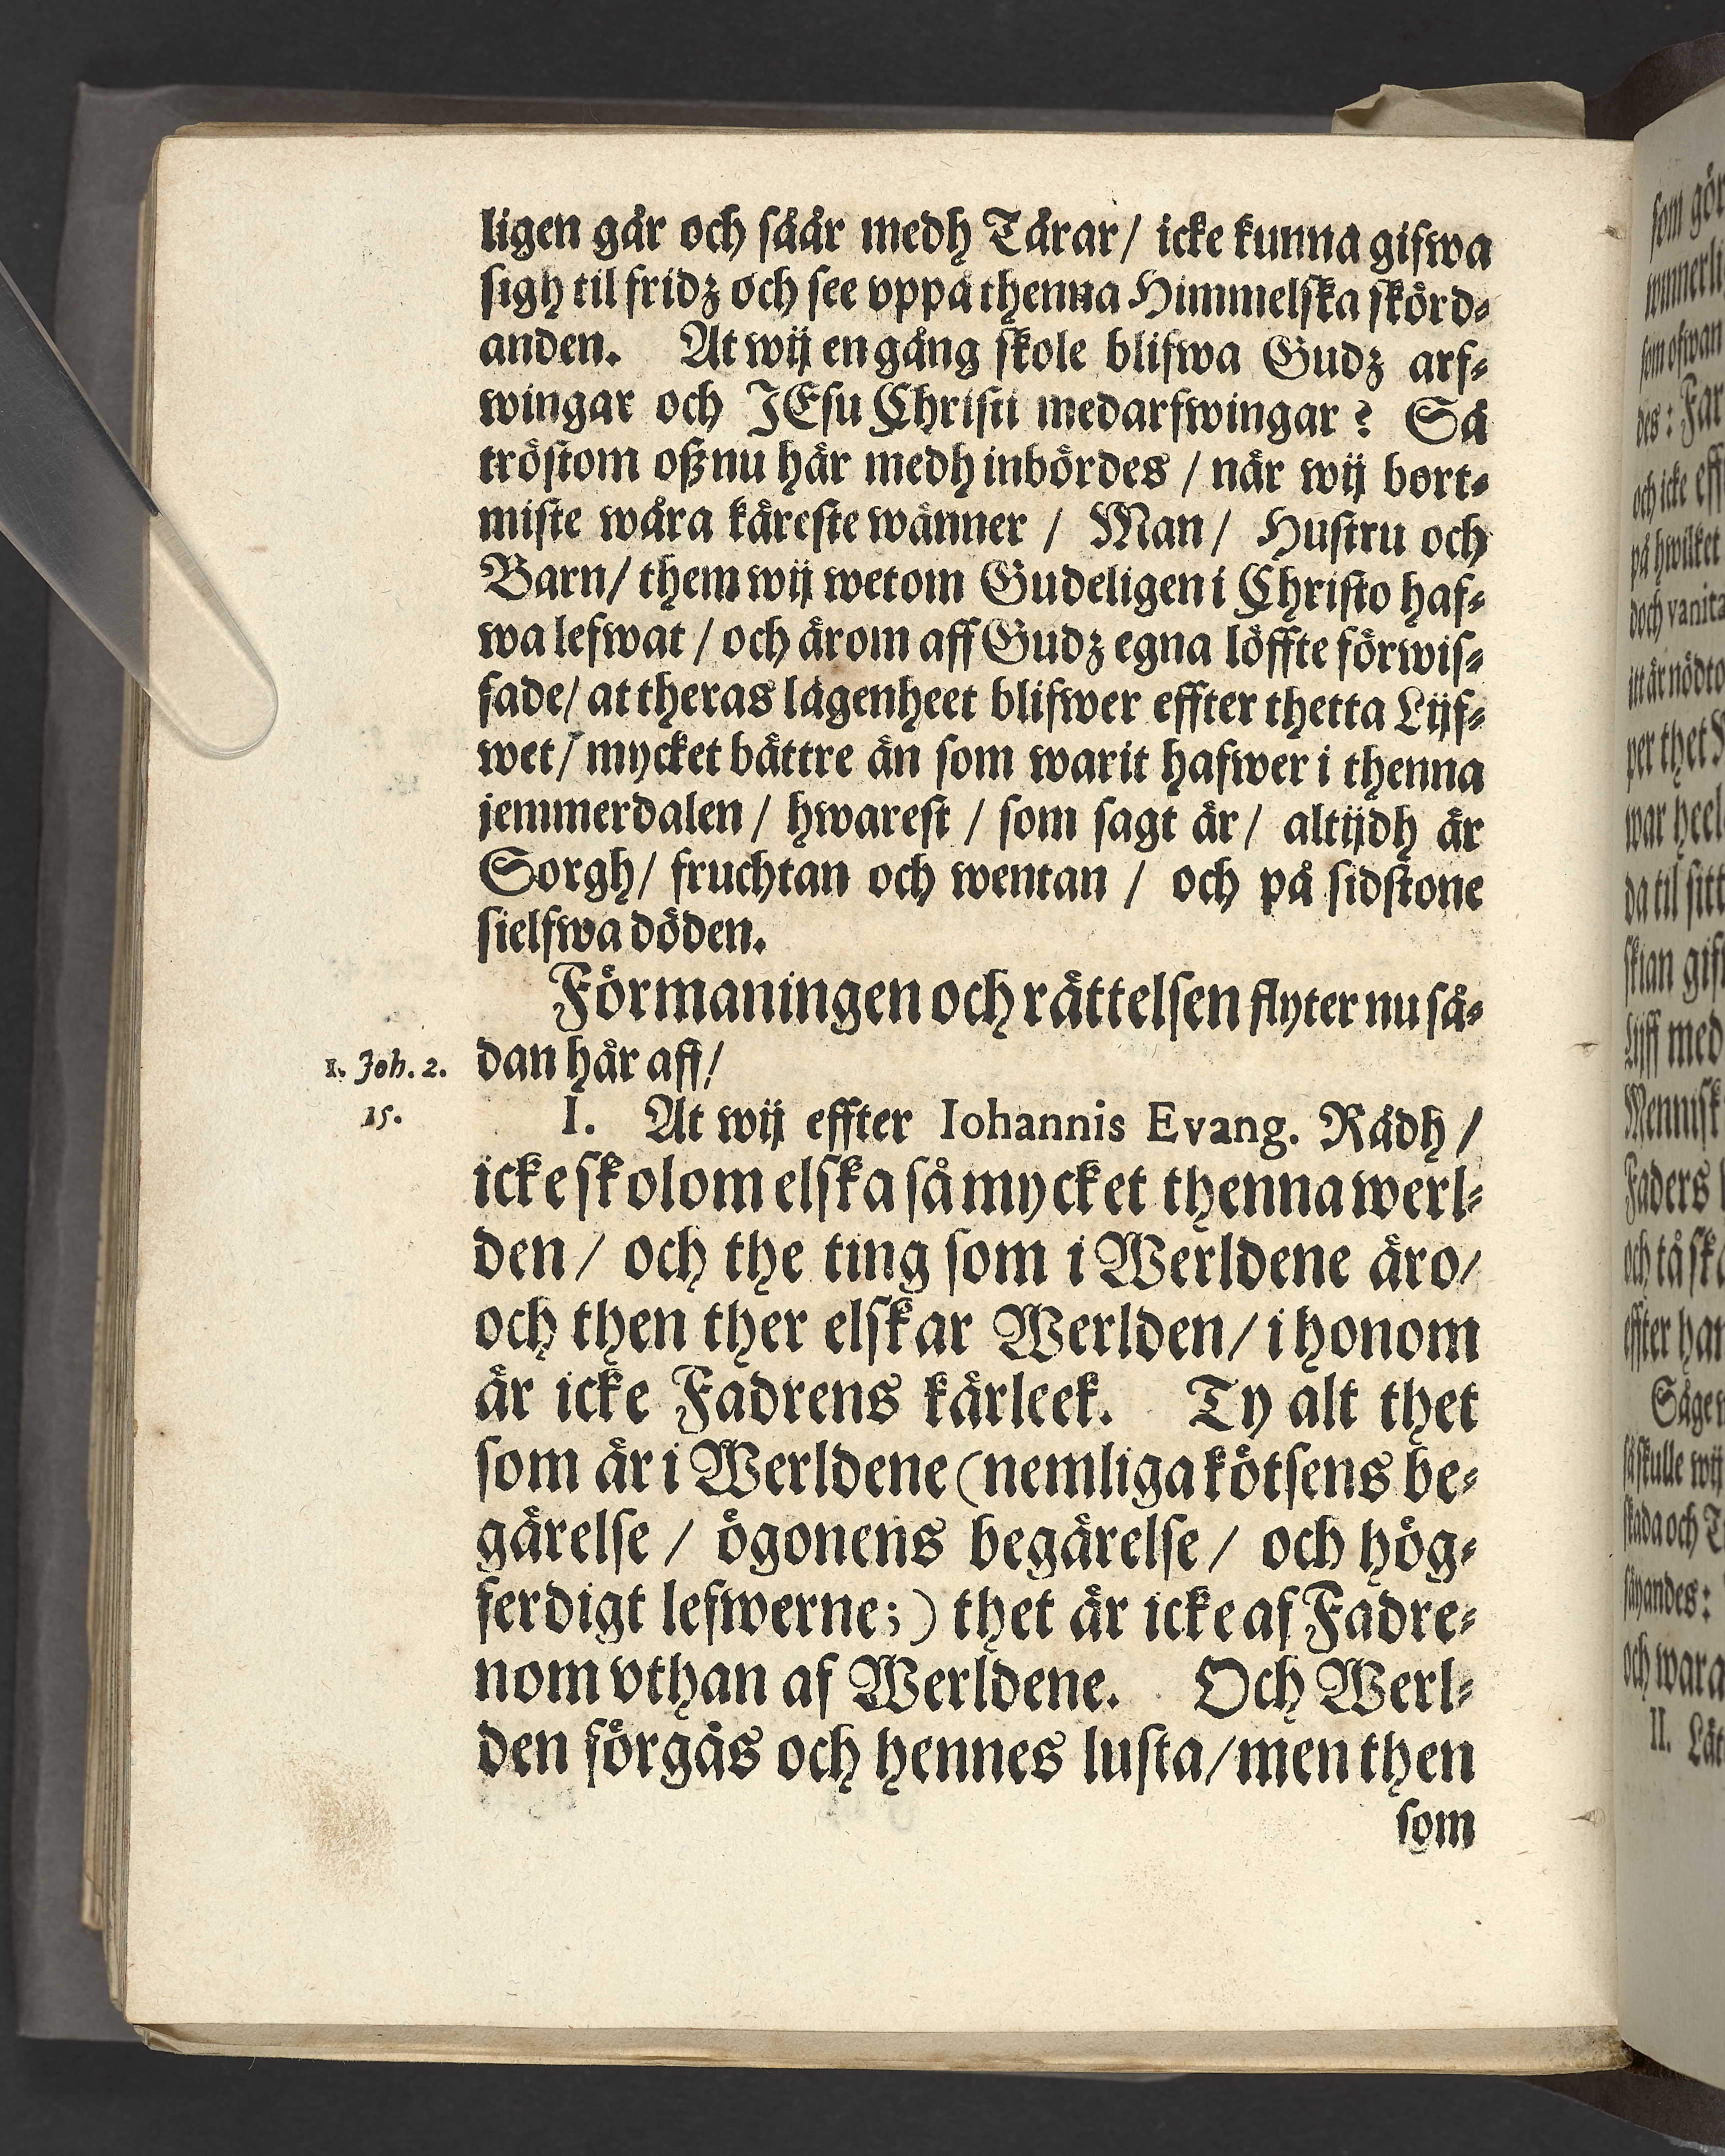 ligen går och sååår medh Tårar / icke kunna gifwa
sigh til fridz och see vppå thenna Himmelska skörd-
anden. At wij en gång skole blifwa Gudz arf-
wingar och JEsu Christi medarfwingar? Så
tröstom oß nu här medh inbördes / när wij bort-
miste wåra käreste wänner / Man / Hustru och
Barn / them wij wetom Gudeligen i Christo haf-
wa lefwat / och ärom aff Gudz egna löffte förwis-
sade / at theras lägenheet blifwer effter thetta Lijf-
wet / mycket bättre än som warit hafwer i thenna
jemmerdalen / hwarest / som sagt är / altijdh är
Sorgh / fruchtan och wentan / och på sidstone
sielfwa döden.
Förmaningen och rättelsen flyter nu så-
dan här aff /
1. Joh. 2.
15.
I. At wij effter Iohannis Evang. Rådh /
icke skolom elska så mycket thenna werl-
den / och the ting som i Werldene äro /
och then ther elskar Werlden / i honom
är icke Fadrens kärleek. Ty alt thet
som är i Werldene (nemliga kötsens be-
gärelse / ögonens begärelse / och hög-
ferdigt lefwerne;) thet är icke af Fadre-
nom vthan af Werldene. Och Werl-
den förgås och hennes lusta / men then
som